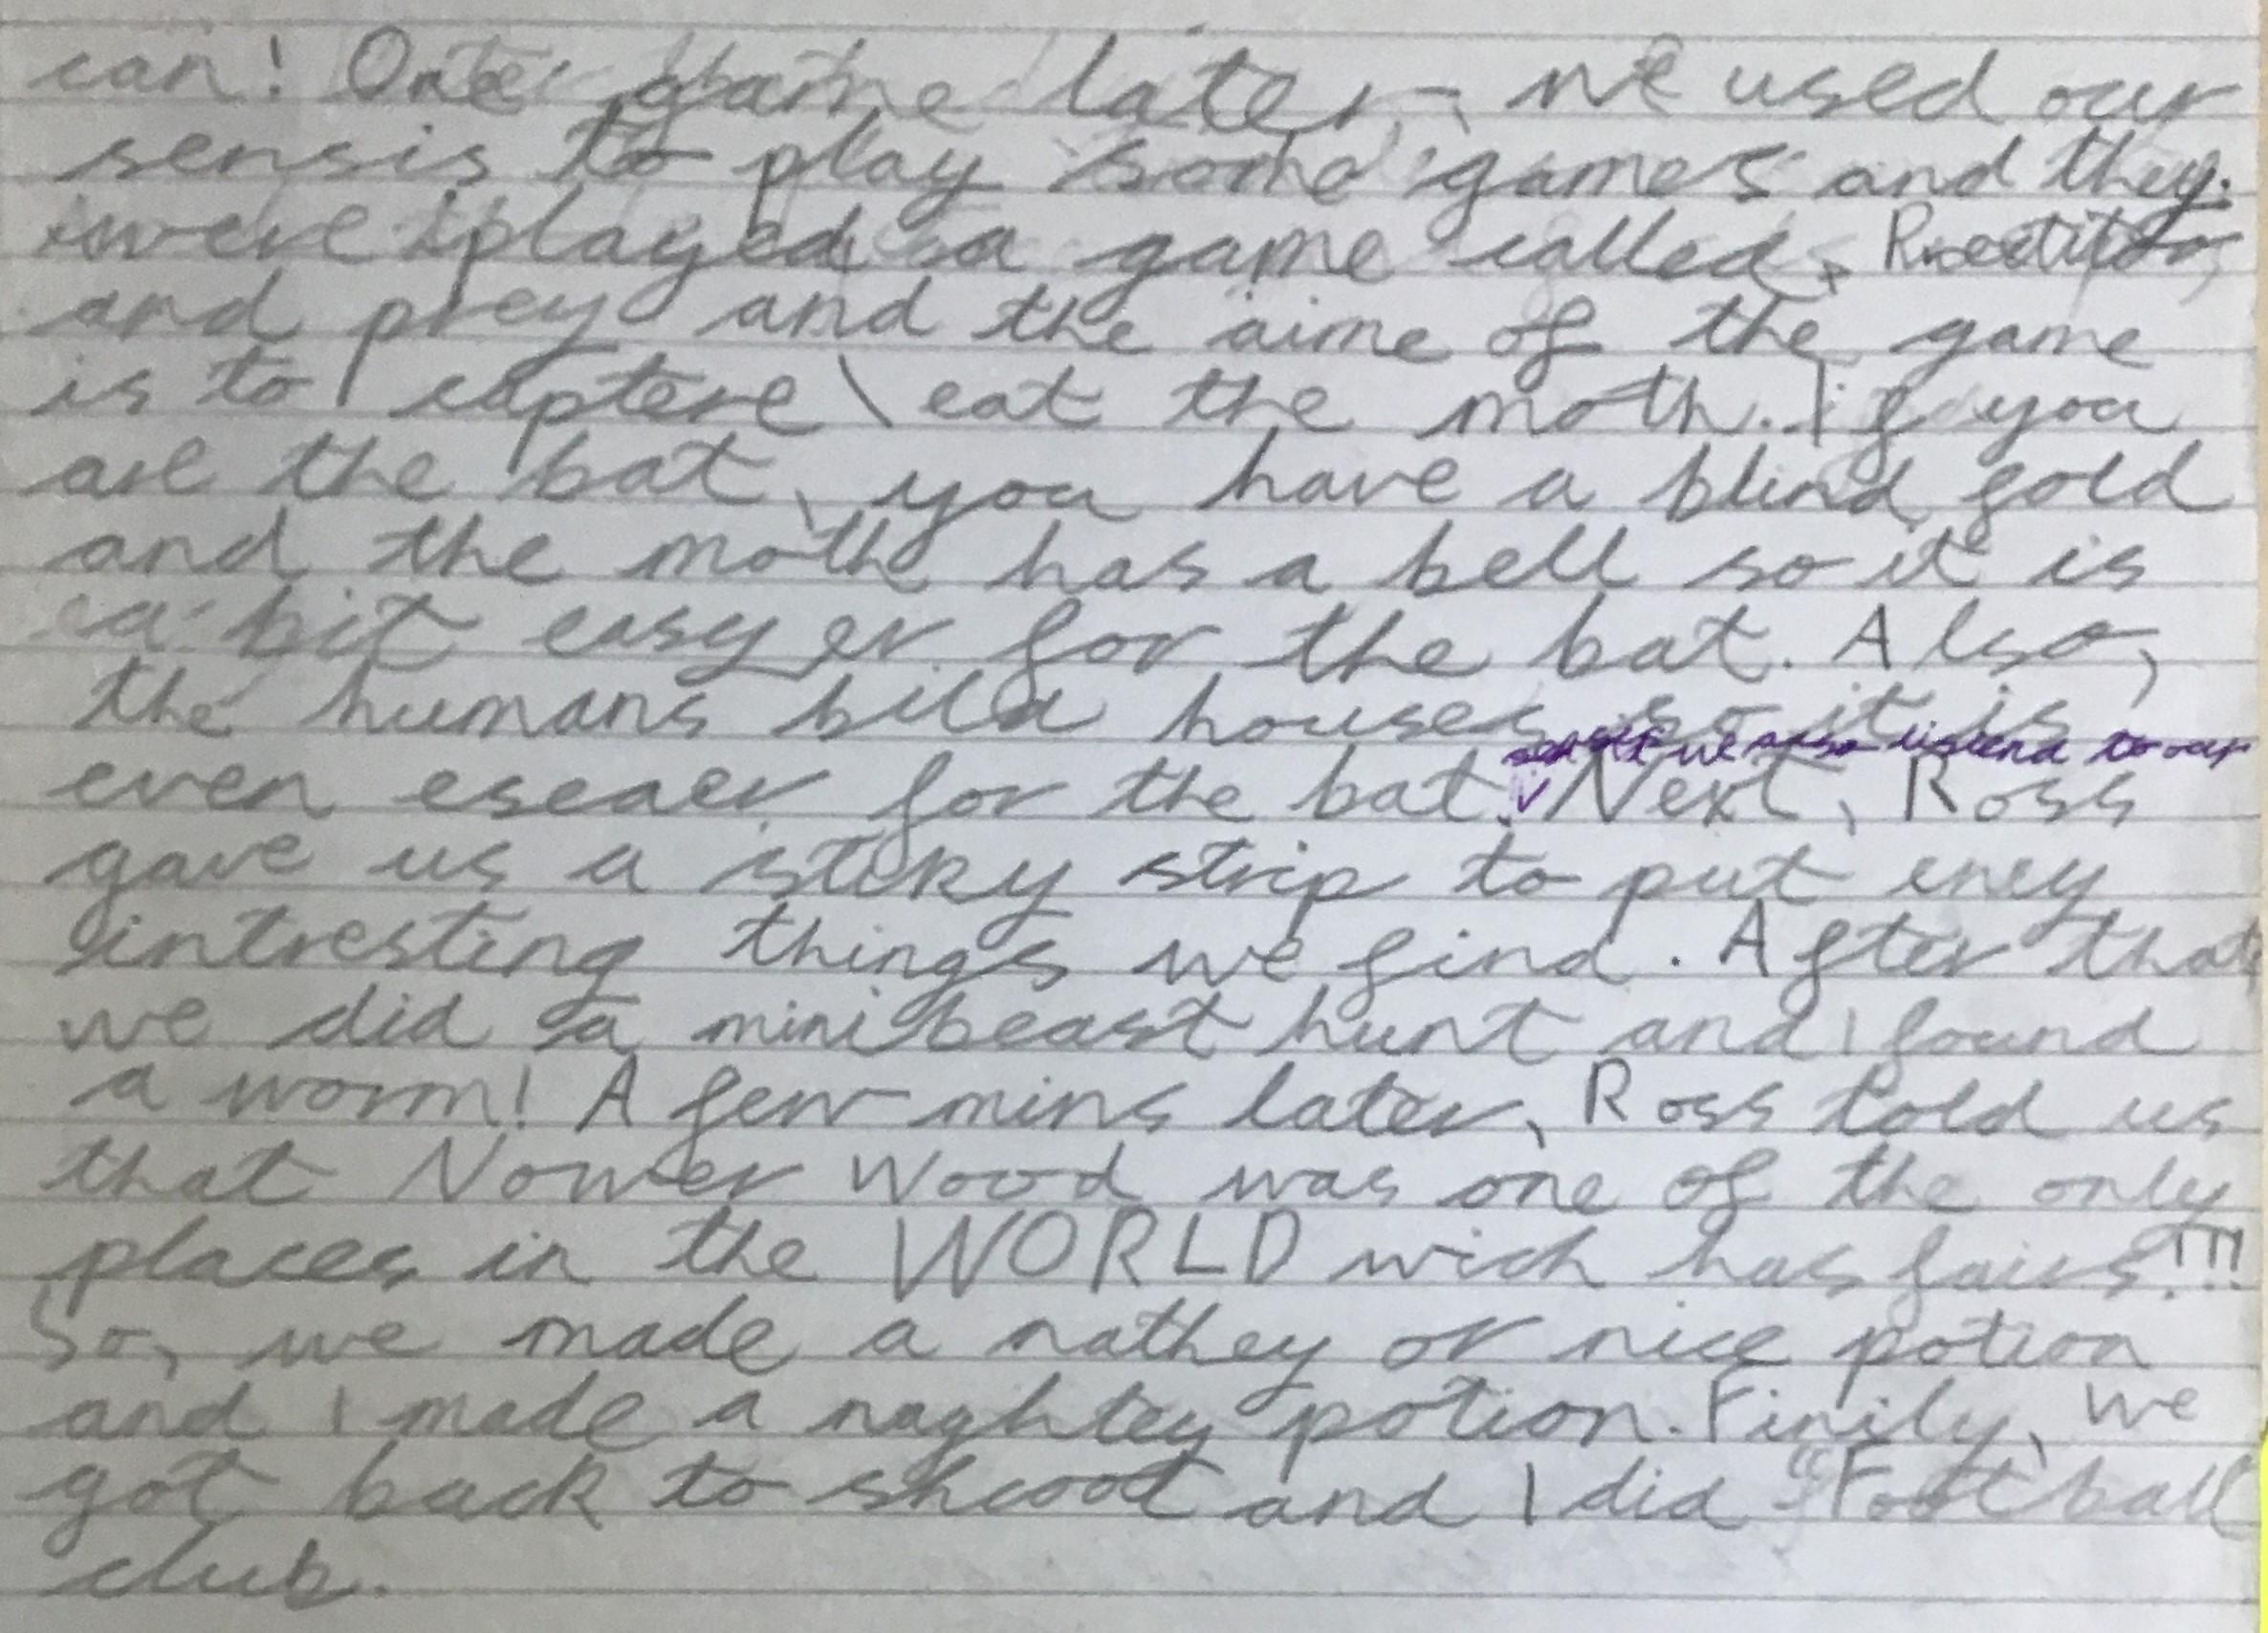 can! One game later, we used our
sensis to play some games and they
were played a game called,
and prey and the aime of the game
is to captere \ eat the moth. If you
are the bat, you have a blind fold
and the moth has a bell so it is
a bit easyer for the bat. Also,
the humans bild houses so it is
even eseaer for the bat. Next, Ross
we also listend to our
gave us a stiky strip to put eney
intresting things we find. After that
we did a minibeast hunt and I found
a worm! A few mins later, Ross told us
that Nower Wood was one of the only
places in the WORLD wich has fairs!!!
So, we made a nathey or nice potion
and I made a naghtey potion. Finily, we
got back to shcool and I did "Football
club.